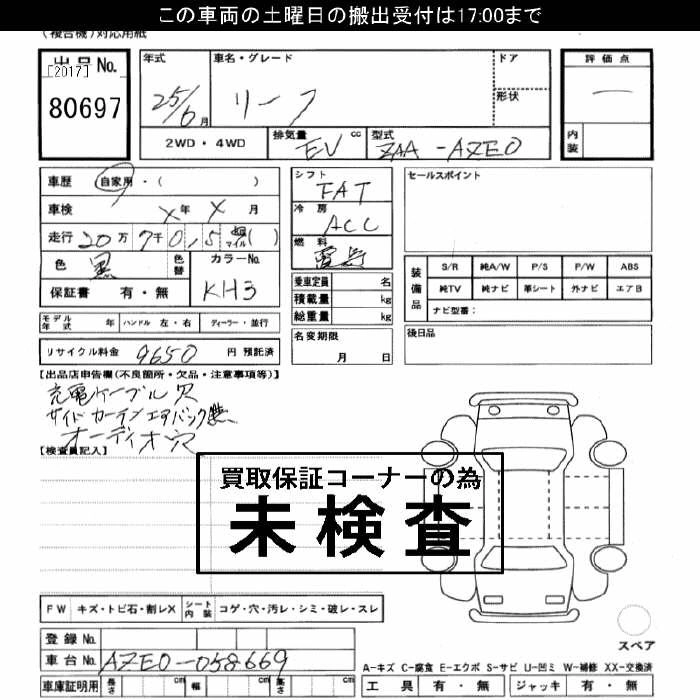 この車両の土曜日の搬出受付は17:00まで
(複合機)対応用紙
出品No.
[2017]
80697
年式
25/6月
車名・グレード
リーフ
ドア
形状
評価点
一
内装
2WD・4WD
排気量 EV cc
型式 ZAA-AZE0
車歴 自家用・( )
車検 X年 X月
走行 20万 7千 0,5 マイル( )
色 黒 色替
カラーNo. KH3
保証書 有・無
シフト FAT
冷房 ACC
燃料 電気
乗車定員 名
積載量 kg
総重量 kg
セールスポイント
装備品
S/R 純A/W P/S P/W ABS
純TV 純ナビ 革シート 外ナビ エアB
ナビ型番:
モデル年式 年 ハンドル 左・右 ディーラー・並行
リサイクル料金 9650 円 預託済
名変期限
月 日
後日品
【出品店申告欄(不良箇所・欠品・注意事項等)】
充電ケーブル穴
サイドカーテンエアバック無
オーディオ穴
【検査員記入】
買取保証コーナーの為
未検査
FW キズ・トビ石・割レX シート内装 コゲ・穴・汚レ・シミ・破レ・スレ
登録No.
車台No. AZE0-058669
車庫証明用 長さ cm 幅 cm 高さ cm
スペア
A-キズ C-腐食 E-エクボ S-サビ U-凹ミ W-補修 XX-交換済
工具 有・無 ジャッキ 有・無